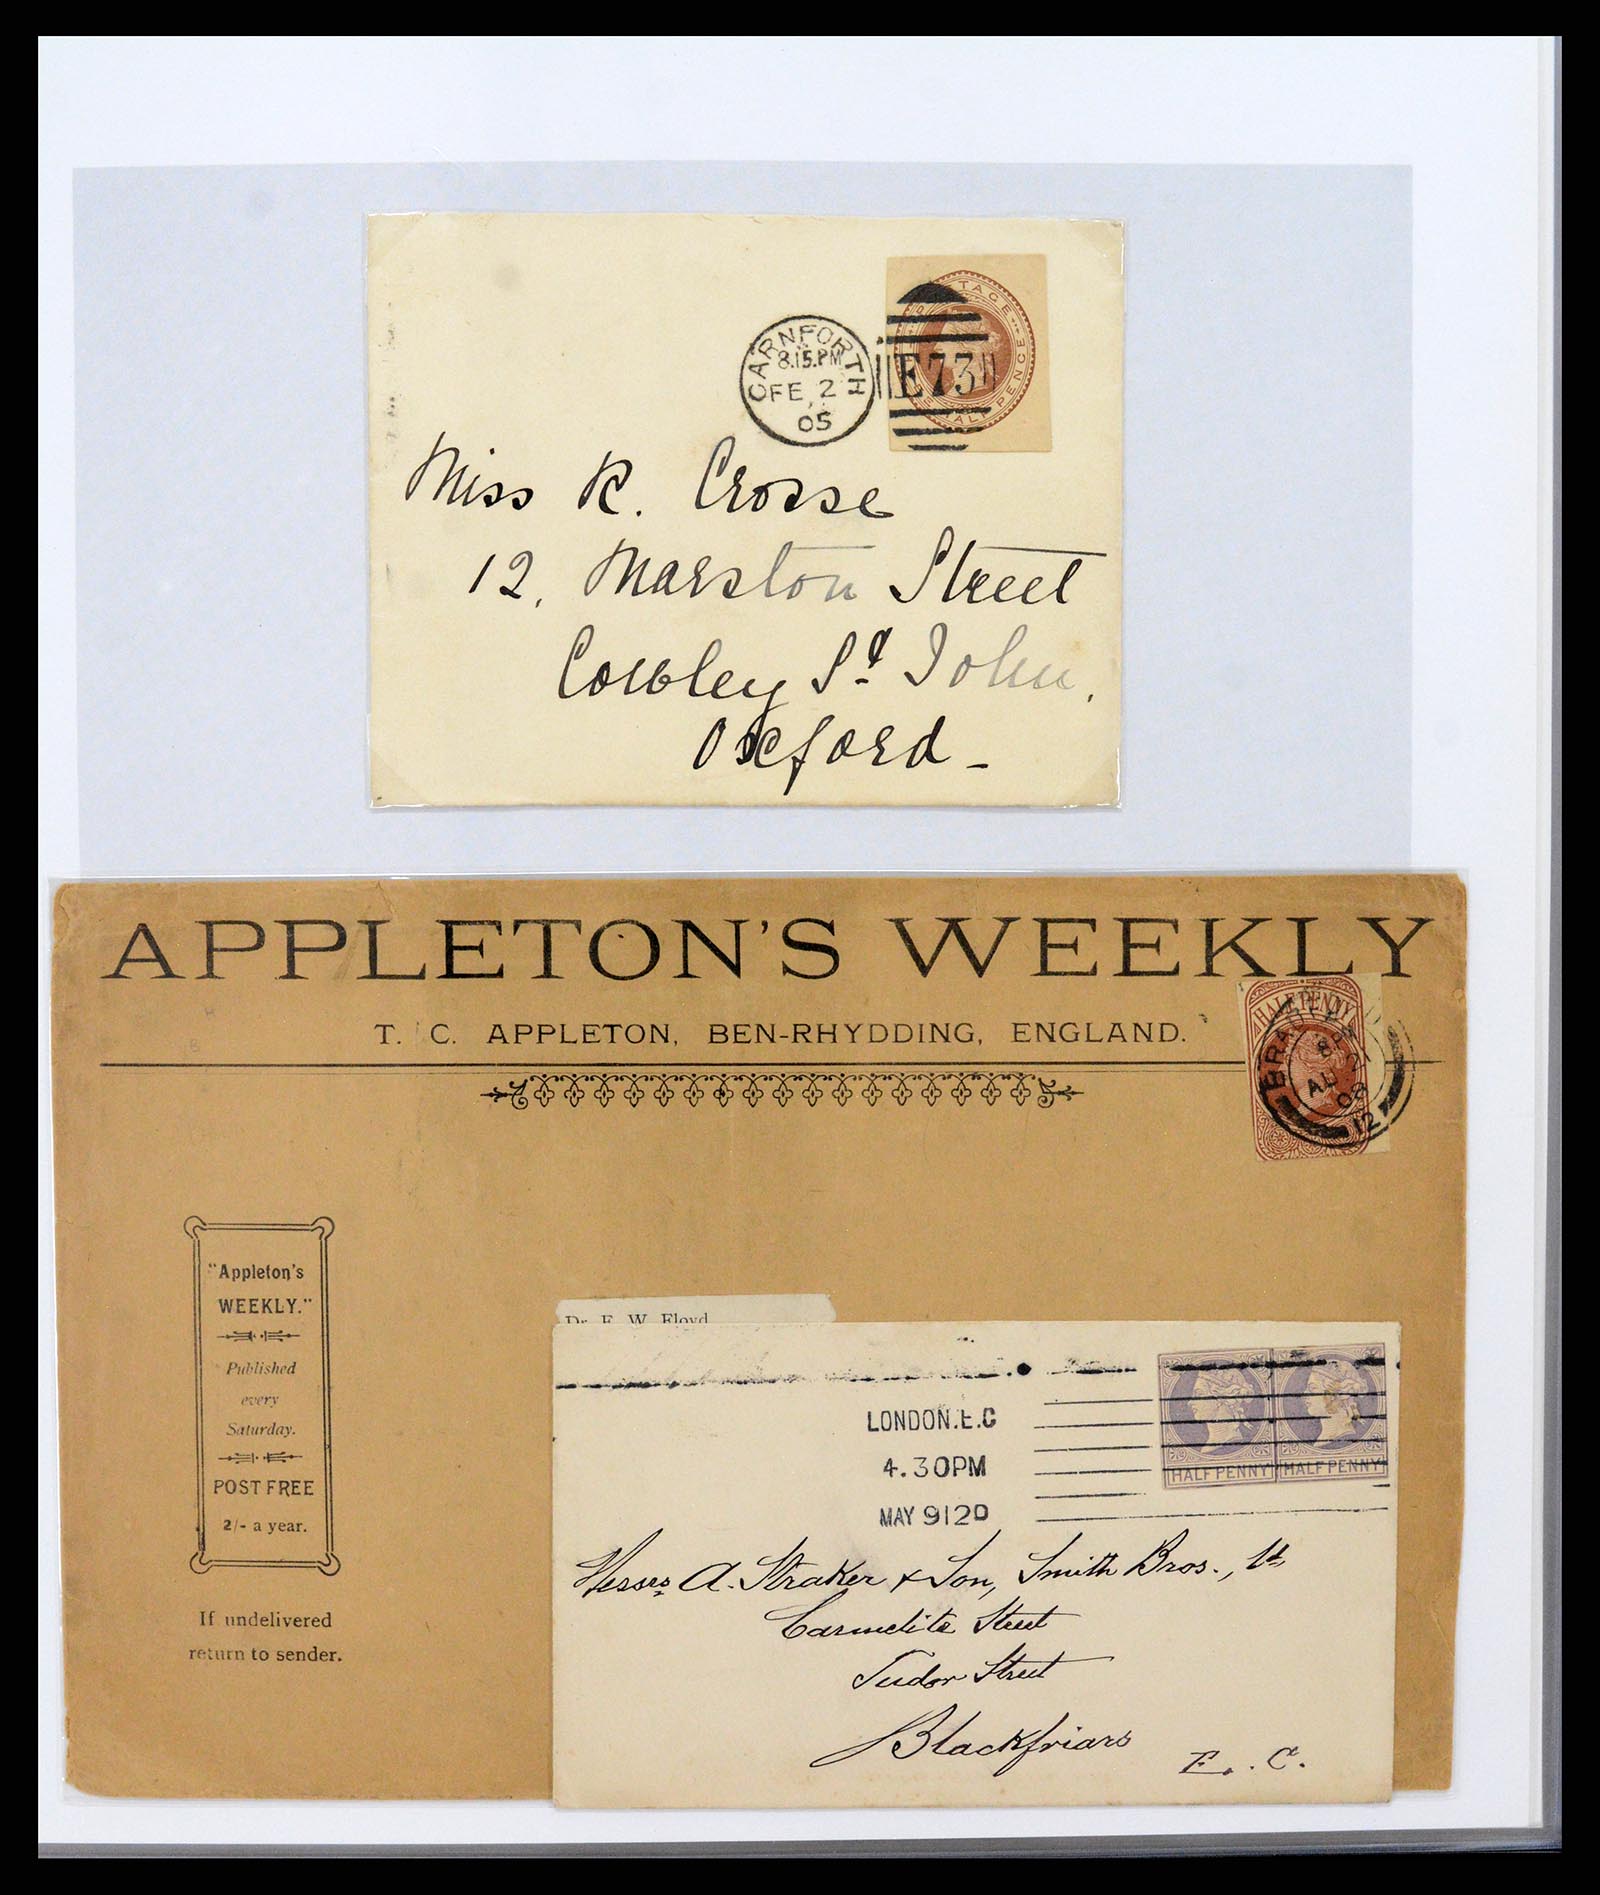 CARNFORTH
8.15.PM
FE 2
05
E73
Miss R. Crosse
12, Marston Street
Cowley St. John,
Oxford -
APPLETON'S WEEKLY
T. C. APPLETON, BEN-RHYDDING, ENGLAND.
HALFPENNY
AU 21
08
12
"Appleton's
WEEKLY."
Published
every
Saturday.
POST FREE
2/- a year.
If undelivered
return to sender.
Dr. F. W. Floyd
LONDON.E.C
4.30PM
MAY 9 12 D
HALFPENNY HALFPENNY
Messrs A. Straker & Son, Smith Bros., Ld
Carmelite Street
Tudor Street
Blackfriars
E. C.